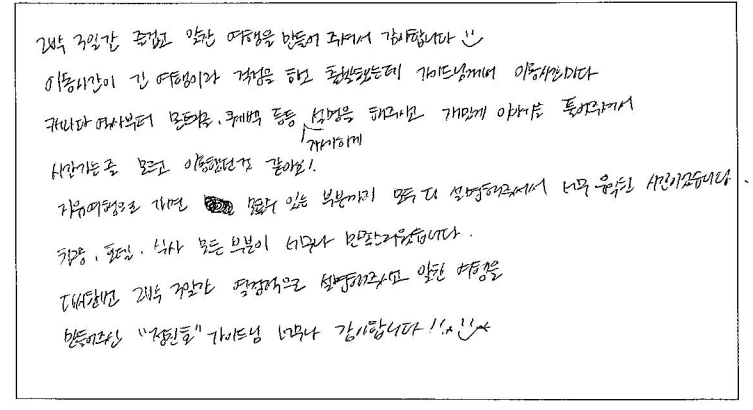 2박 3일간 즐겁고 알찬 여행을 만들어 주셔서 감사합니다
이동시간이 긴 여행이라 걱정을 하고 출발했는데 가이드님께서 이동시간마다
캐나다 역사부터 몬트리올, 퀘벡 등등 설명을 해주시고 재밌게 이야기를 풀어주셔서
자세하게
시간가는줄 모르고 이동했던것 같아요!
자유여행으로 가면 모를수 있는 부분까지 모두 다 설명해주셔서 너무 유익한 시간이었습니다.
차량, 호텔, 식사 모든 부분이 너무나 만족스러웠습니다.
다시한번 2박 3일간 열정적으로 설명해주시고 알찬 여행을
만들어주신 "정진호" 가이드님 너무나 감사합니다!!